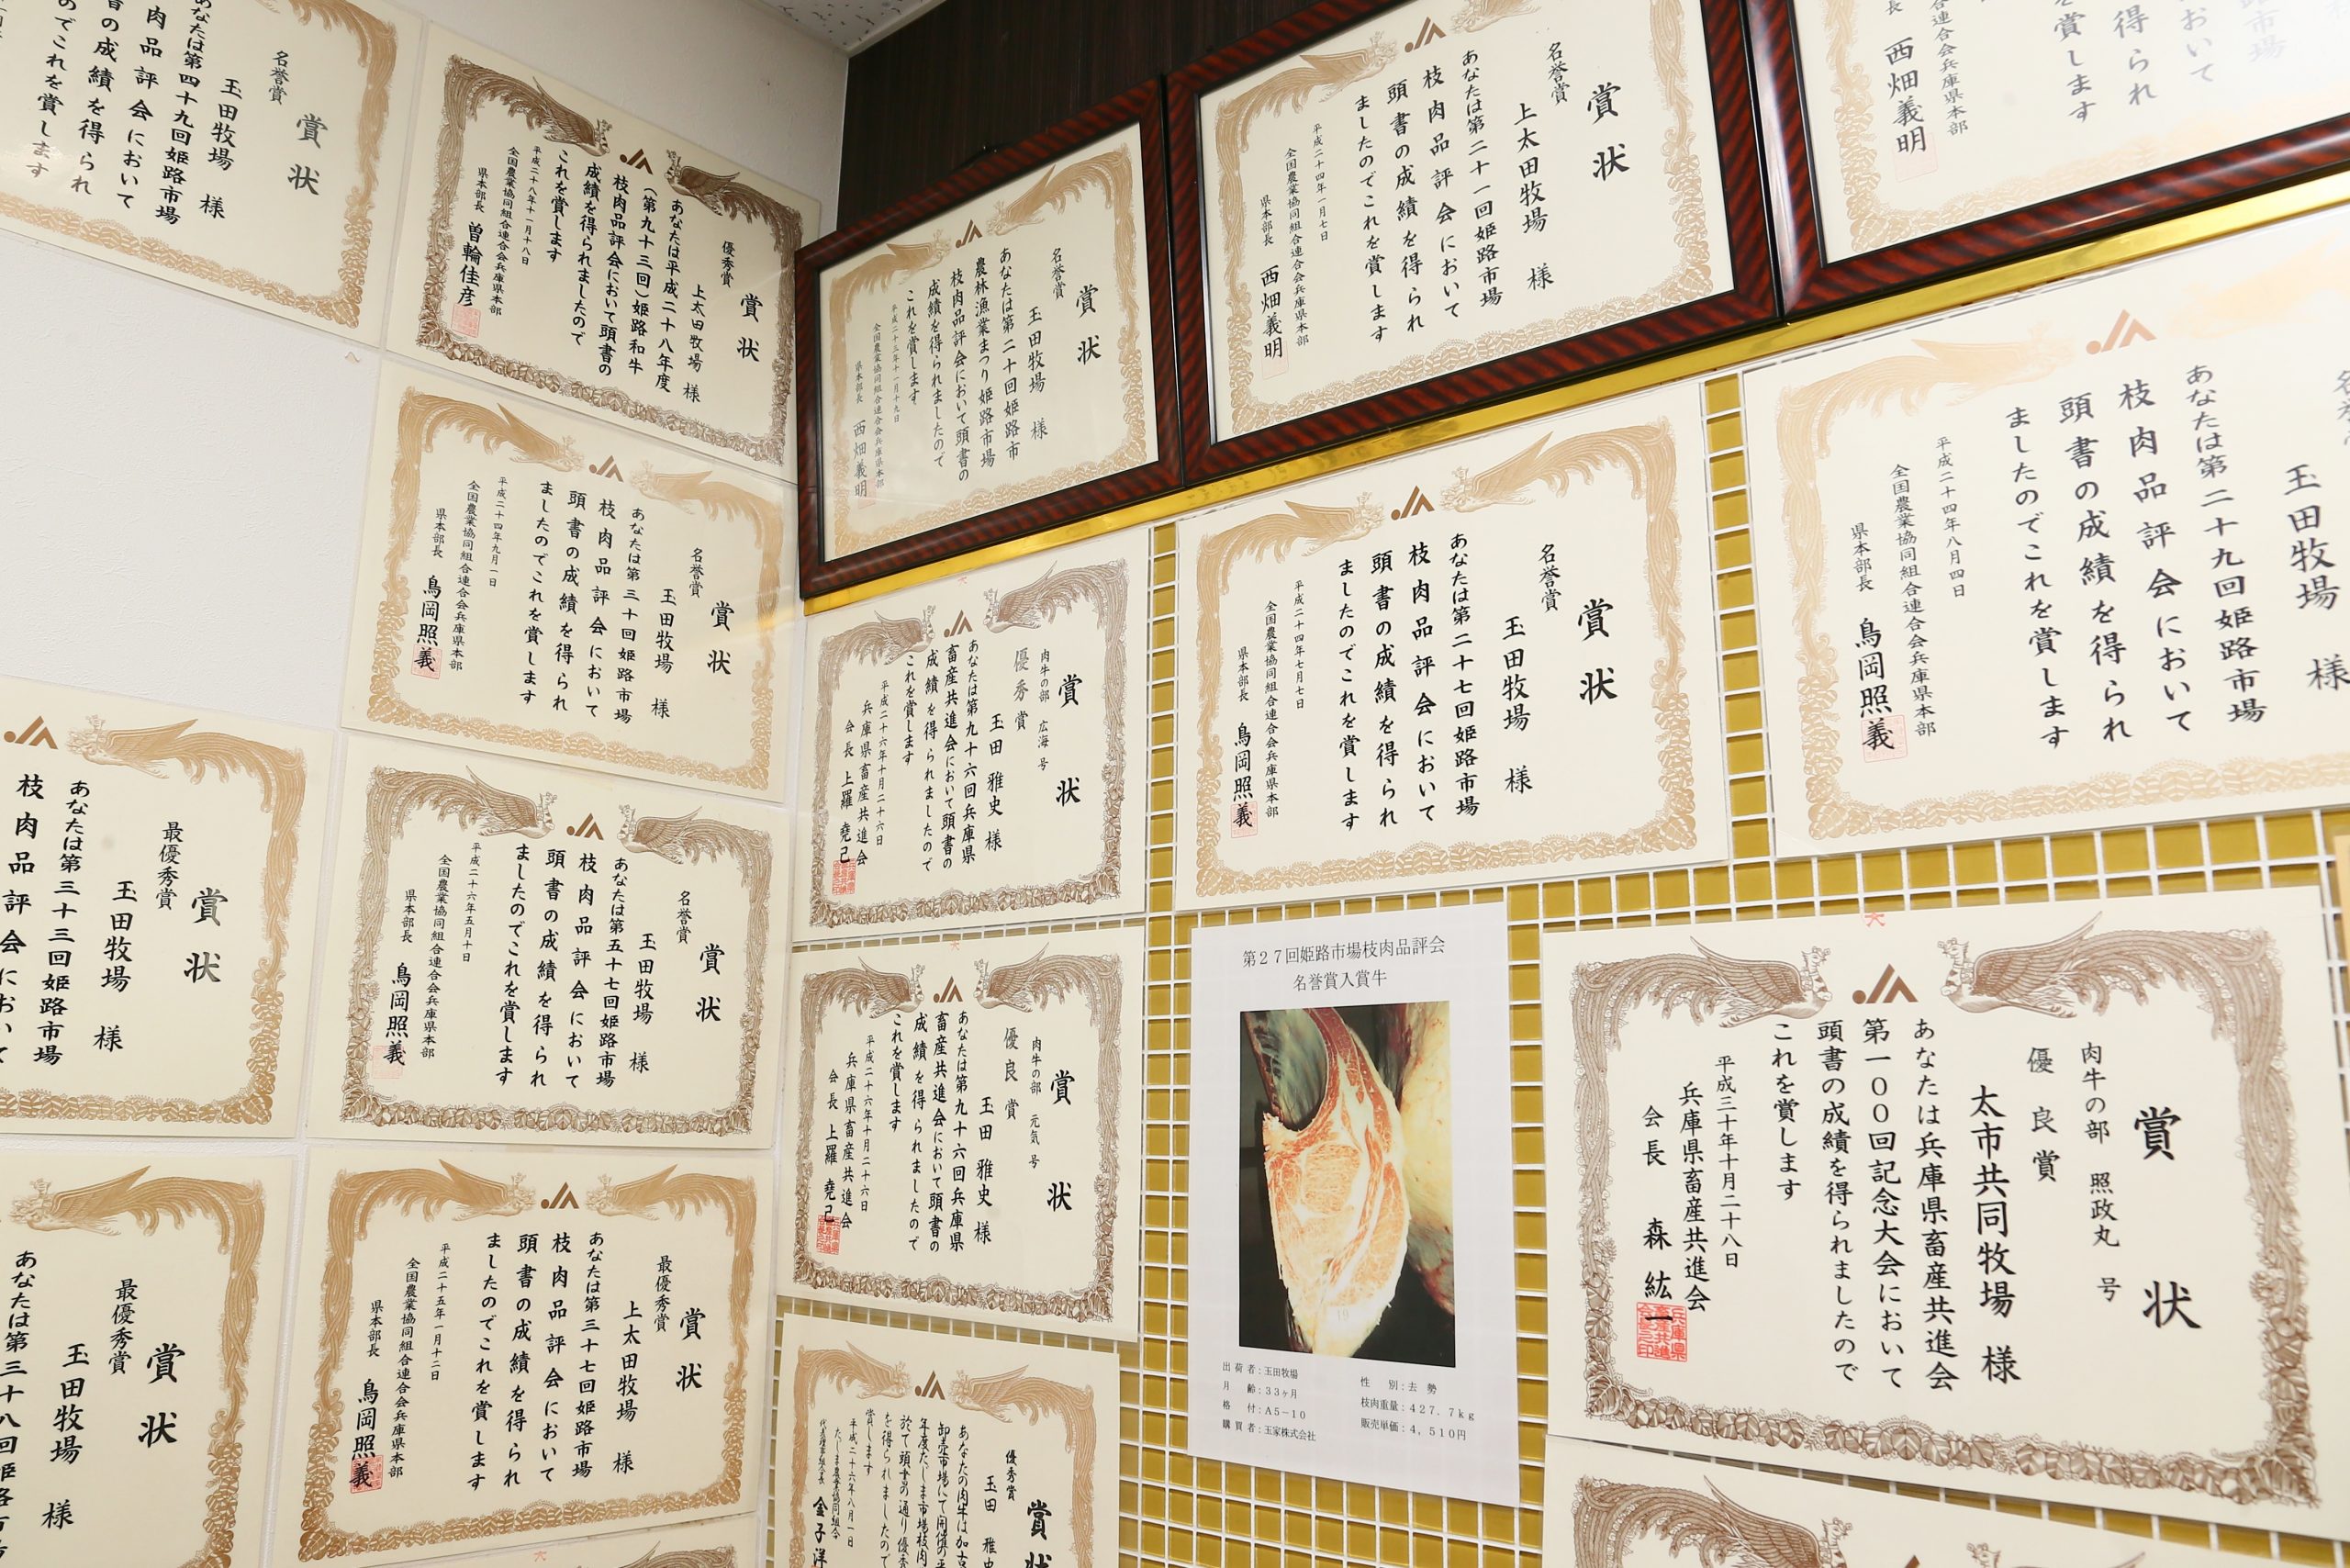 名誉賞
賞状
玉田牧場 様
あなたは第四十九回姫路市場
肉品評会において
の成績を得られ
のでこれを賞します
賞状
優秀賞
上太田牧場 様
あなたは平成二十八年度
(第九十三回)姫路和牛
枝肉品評会において頭書の
成績を得られましたので
これを賞します
平成二十八年十一月十八日
全国農業協同組合連合会兵庫県本部
県本部長 曽輪佳彦
賞状
名誉賞
玉田牧場 様
あなたは第三十回姫路市場
枝肉品評会において
頭書の成績を得られ
ましたのでこれを賞します
平成二十四年九月一日
全国農業協同組合連合会兵庫県本部
県本部長 鳥岡照義
賞状
最優秀賞
玉田牧場 様
あなたは第三十三回姫路市場
枝肉品評会において
賞状
名誉賞
玉田牧場 様
あなたは第五十七回姫路市場
枝肉品評会において
頭書の成績を得られ
ましたのでこれを賞します
平成二十六年五月十日
全国農業協同組合連合会兵庫県本部
県本部長 鳥岡照義
賞状
最優秀賞
玉田牧場 様
あなたは第三十八回姫路市
賞状
最優秀賞
上太田牧場 様
あなたは第三十七回姫路市場
枝肉品評会において
頭書の成績を得られ
ましたのでこれを賞します
平成二十五年一月十二日
全国農業協同組合連合会兵庫県本部
県本部長 鳥岡照義
賞状
名誉賞
玉田牧場 様
あなたは第二十回姫路市
農林漁業まつり姫路市場
枝肉品評会において頭書の
成績を得られましたので
これを賞します
全国農業協同組合連合会兵庫県本部
県本部長 西畑義明
賞状
名誉賞
上太田牧場 様
あなたは第二十一回姫路市場
枝肉品評会において
頭書の成績を得られ
ましたのでこれを賞します
平成二十四年一月七日
全国農業協同組合連合会兵庫県本部
県本部長 西畑義明
路市場
おいて
得られ
賞します
連合会兵庫県本部
長 西畑義明
賞状
肉牛の部 広海号
優秀賞
玉田 雅史 様
あなたは第九十六回兵庫県
畜産共進会において頭書の
成績を得られましたので
これを賞します
平成二十六年十月二十六日
兵庫県畜産共進会
会長 上羅 堯己
賞状
名誉賞
玉田牧場 様
あなたは第二十七回姫路市場
枝肉品評会において
頭書の成績を得られ
ましたのでこれを賞します
平成二十四年七月七日
全国農業協同組合連合会兵庫県本部
県本部長 鳥岡照義
玉田牧場 様
あなたは第二十九回姫路市場
枝肉品評会において
頭書の成績を得られ
ましたのでこれを賞します
平成二十四年八月四日
全国農業協同組合連合会兵庫県本部
県本部長 鳥岡照義
賞状
肉牛の部 元気号
優良賞
玉田 雅史 様
あなたは第九十六回兵庫県
畜産共進会において頭書の
成績を得られましたので
これを賞します
平成二十六年十月二十六日
兵庫県畜産共進会
会長 上羅 堯己
第27回姫路市場枝肉品評会
名誉賞入賞牛
出荷者:玉田牧場
月 齢:33ヶ月
格 付:A5-10
購買者:玉家株式会社
性 別:去 勢
枝肉重量:427.7kg
販売単価:4,510円
賞状
肉牛の部 照政丸 号
優良賞
太市共同牧場 様
あなたは兵庫県畜産共進会
第一〇〇回記念大会において
頭書の成績を得られましたので
これを賞します
平成三十年十月二十八日
兵庫県畜産共進会
会長 森 紘一
賞状
優秀賞
玉田 雅史
あなたの肉牛は加古
卸売市場にて開催の平
年度たじま市場枝肉
於て頭書の通り優秀
を得られましたので
賞します
平成二十六年八月一日
たじま農業協同組合
金子洋